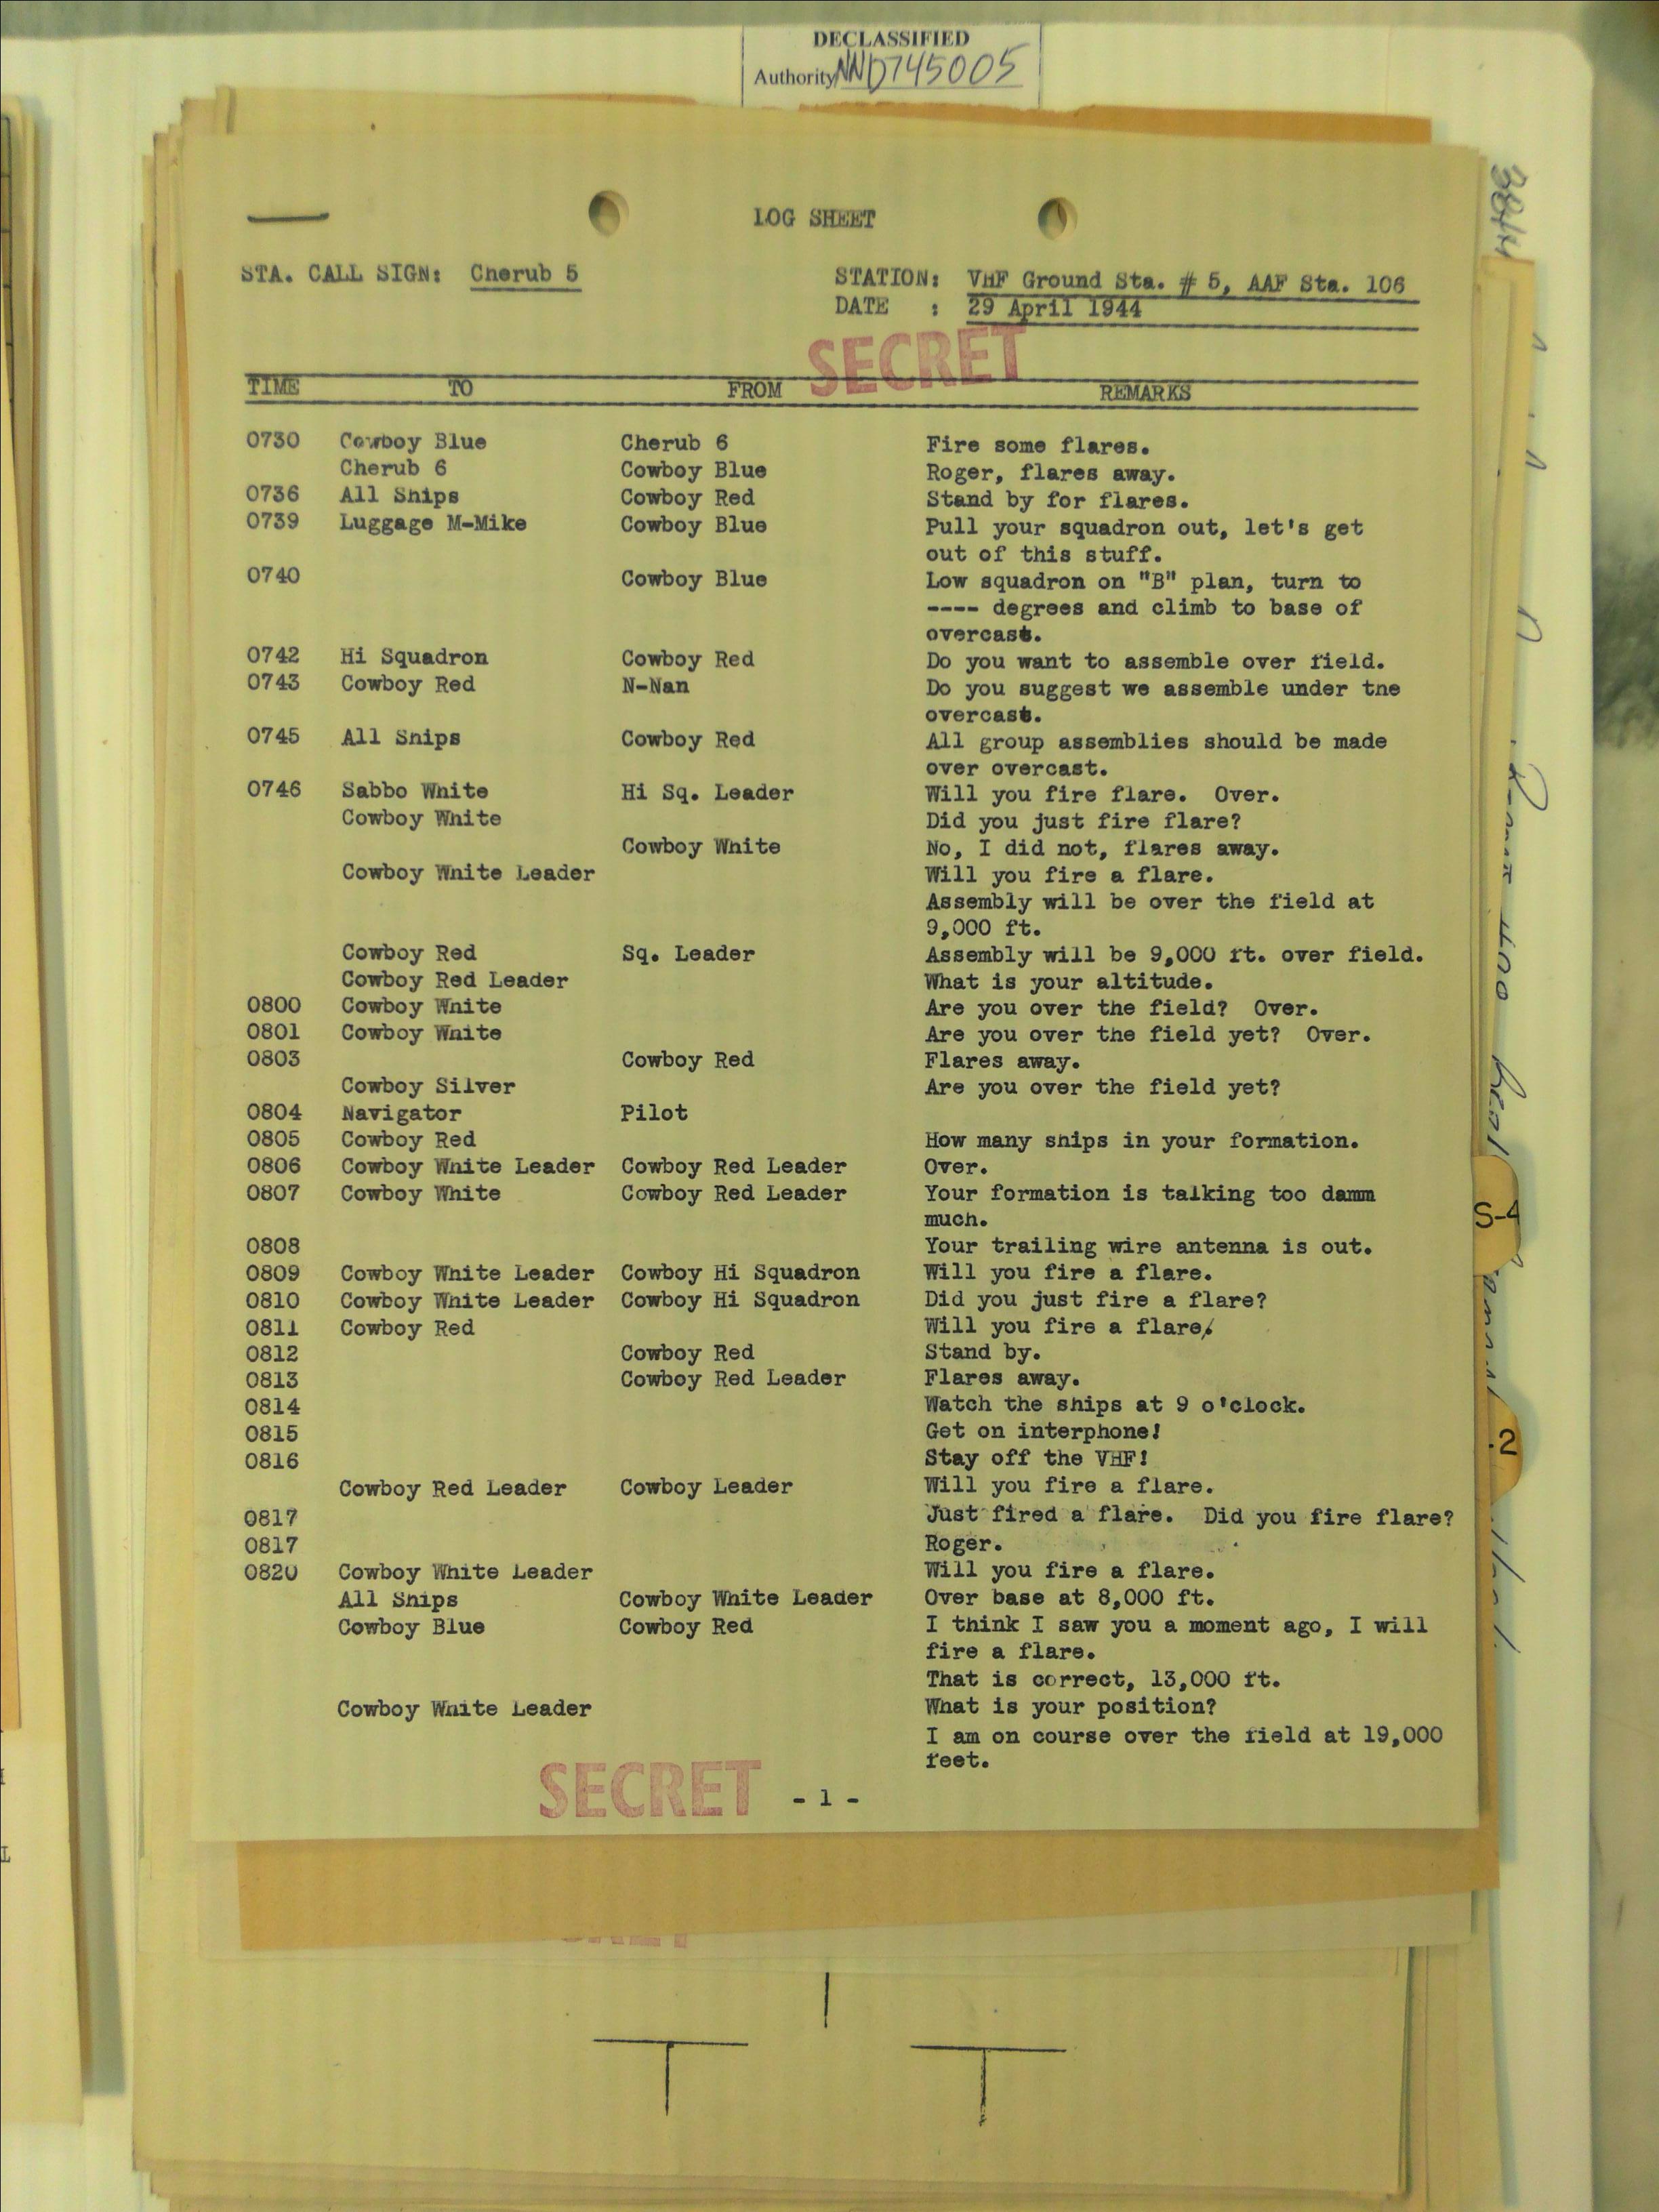 DECLASSIFIED
Authority NND745005
LOG SHEET
STA. CALL SIGN: Cherub 5 STATION: VHF Ground Sta. # 5, AAF Sta. 106
DATE : 29 April 1944
SECRET
TIME TO FROM REMARKS
0730 Cowboy Blue Cherub 6 Fire some flares.
Cherub 6 Cowboy Blue Roger, flares away.
0736 All Ships Cowboy Red Stand by for flares.
0739 Luggage M-Mike Cowboy Blue Pull your squadron out, let's get
out of this stuff.
0740 Cowboy Blue Low squadron on "B" plan, turn to
---- degrees and climb to base of
overcast.
0742 Hi Squadron Cowboy Red Do you want to assemble over field.
0743 Cowboy Red N-Nan Do you suggest we assemble under the
overcast.
0745 All Ships Cowboy Red All group assemblies should be made
over overcast.
0746 Sabbo White Hi Sq. Leader Will you fire flare. Over.
Cowboy White Did you just fire flare?
Cowboy White No, I did not, flares away.
Cowboy White Leader Will you fire a flare.
Assembly will be over the field at
9,000 ft.
Cowboy Red Sq. Leader Assembly will be 9,000 ft. over field.
Cowboy Red Leader What is your altitude.
0800 Cowboy White Are you over the field? Over.
0801 Cowboy White Are you over the field yet? Over.
0803 Cowboy Red Flares away.
Cowboy Silver Are you over the field yet?
0804 Navigator Pilot
0805 Cowboy Red How many ships in your formation.
0806 Cowboy White Leader Cowboy Red Leader Over.
0807 Cowboy White Cowboy Red Leader Your formation is talking too damm
much.
0808 Your trailing wire antenna is out.
0809 Cowboy White Leader Cowboy Hi Squadron Will you fire a flare.
0810 Cowboy White Leader Cowboy Hi Squadron Did you just fire a flare?
0811 Cowboy Red Will you fire a flare.
0812 Cowboy Red Stand by.
0813 Cowboy Red Leader Flares away.
0814 Watch the ships at 9 o'clock.
0815 Get on interphone!
0816 Stay off the VHF!
Cowboy Red Leader Cowboy Leader Will you fire a flare.
0817 Just fired a flare. Did you fire flare?
0817 Roger.
0820 Cowboy White Leader Will you fire a flare.
All Ships Cowboy White Leader Over base at 8,000 ft.
Cowboy Blue Cowboy Red I think I saw you a moment ago, I will
fire a flare.
That is correct, 13,000 ft.
Cowboy White Leader What is your position?
I am on course over the field at 19,000
feet.
SECRET - 1 -
S-4
-2